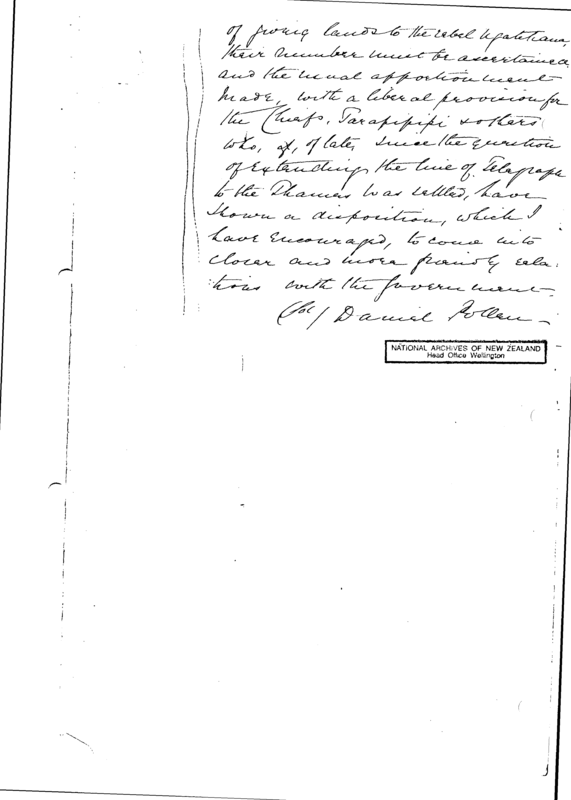 of giving lands to the rebel Ngatihaua,
their number must be ascertained
and the usual apportionment
made, with a liberal provision for
the Chiefs, Tarapipipi & others
who, of late, since the question
of extending the line of Telegraph
to the Thames was settled, have
shown a disposition, which I
have encouraged, to come into
closer and more friendly rela-
tions with the Government.
Daniel Pollen
NATIONAL ARCHIVES OF NEW ZEALAND
Head Office Wellington